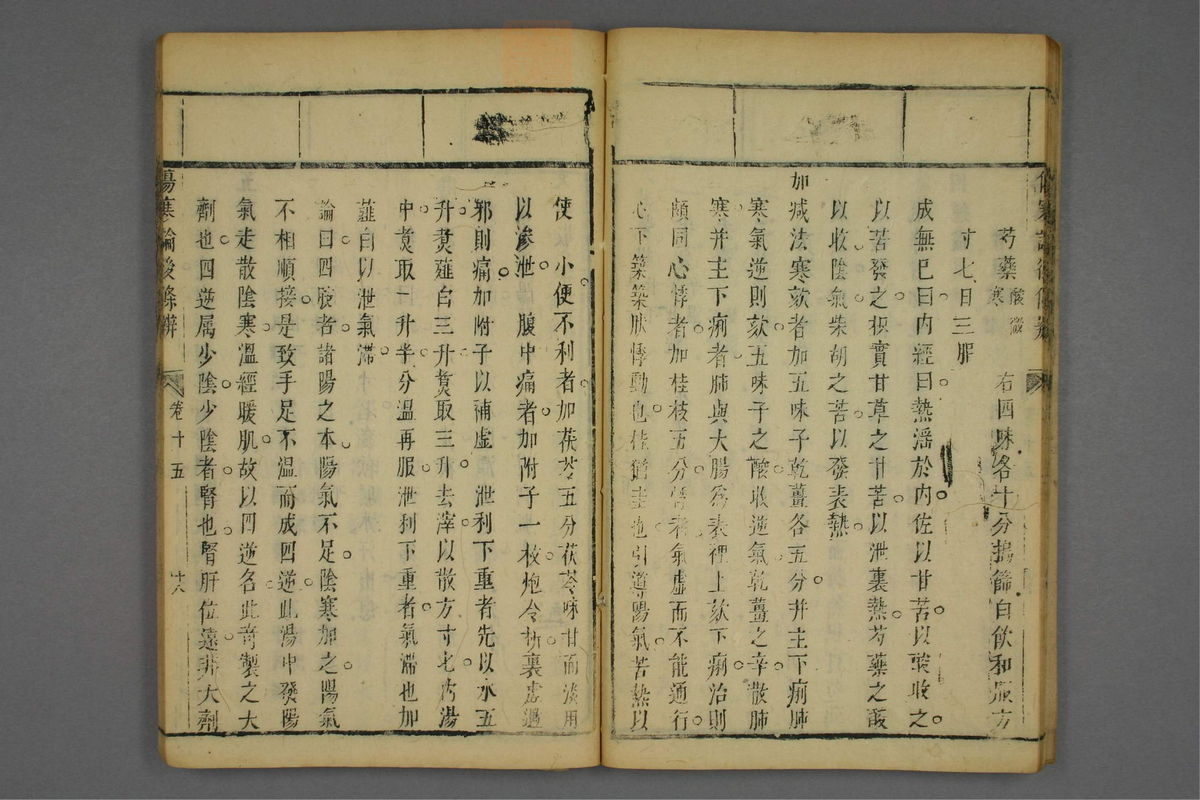 芍藥酸微寒 右四味各十分搗篩白飲和服方
寸七日三服
成無已曰內經曰熱淫於內佐以甘苦以酸收之
以苦發之枳實甘草之甘苦以泄裏熱芍藥之酸
以收陰氣柴胡之苦以發表熱
加減法寒欬者加五味子乾薑各五分并主下痢肺
寒氣逆則欬五味子之酸收逆氣乾薑之辛散肺
寒并主下痢者肺與大腸為表裡上欬下痢治則
頗同心悸者加桂枝五分悸者氣虛而不能通行
心下築築然悸動也桂猶圭也引導陽氣若熱以
使小便不利者加茯苓五分茯苓味甘而淡用
以滲泄腹中痛者加附子一枚炮令坼裏虛遇
邪則痛加附子以補虛泄利下重者先以水五
升煑薤白三升煑取三升去滓以散方寸七內湯
中煑取一升半分溫再服泄利下重者氣滯也加
薤白以泄氣滯
論曰四肢者諸陽之本陽氣不足陰寒加之陽氣
不相順接是致手足不溫而成四逆此湯中發陽
氣走散陰寒溫經暖肌故以四逆名此奇製之大
劑也四逆属少陰少陰者腎也腎肝位遠非大劑
傷寒論後條辨 卷十五 十六